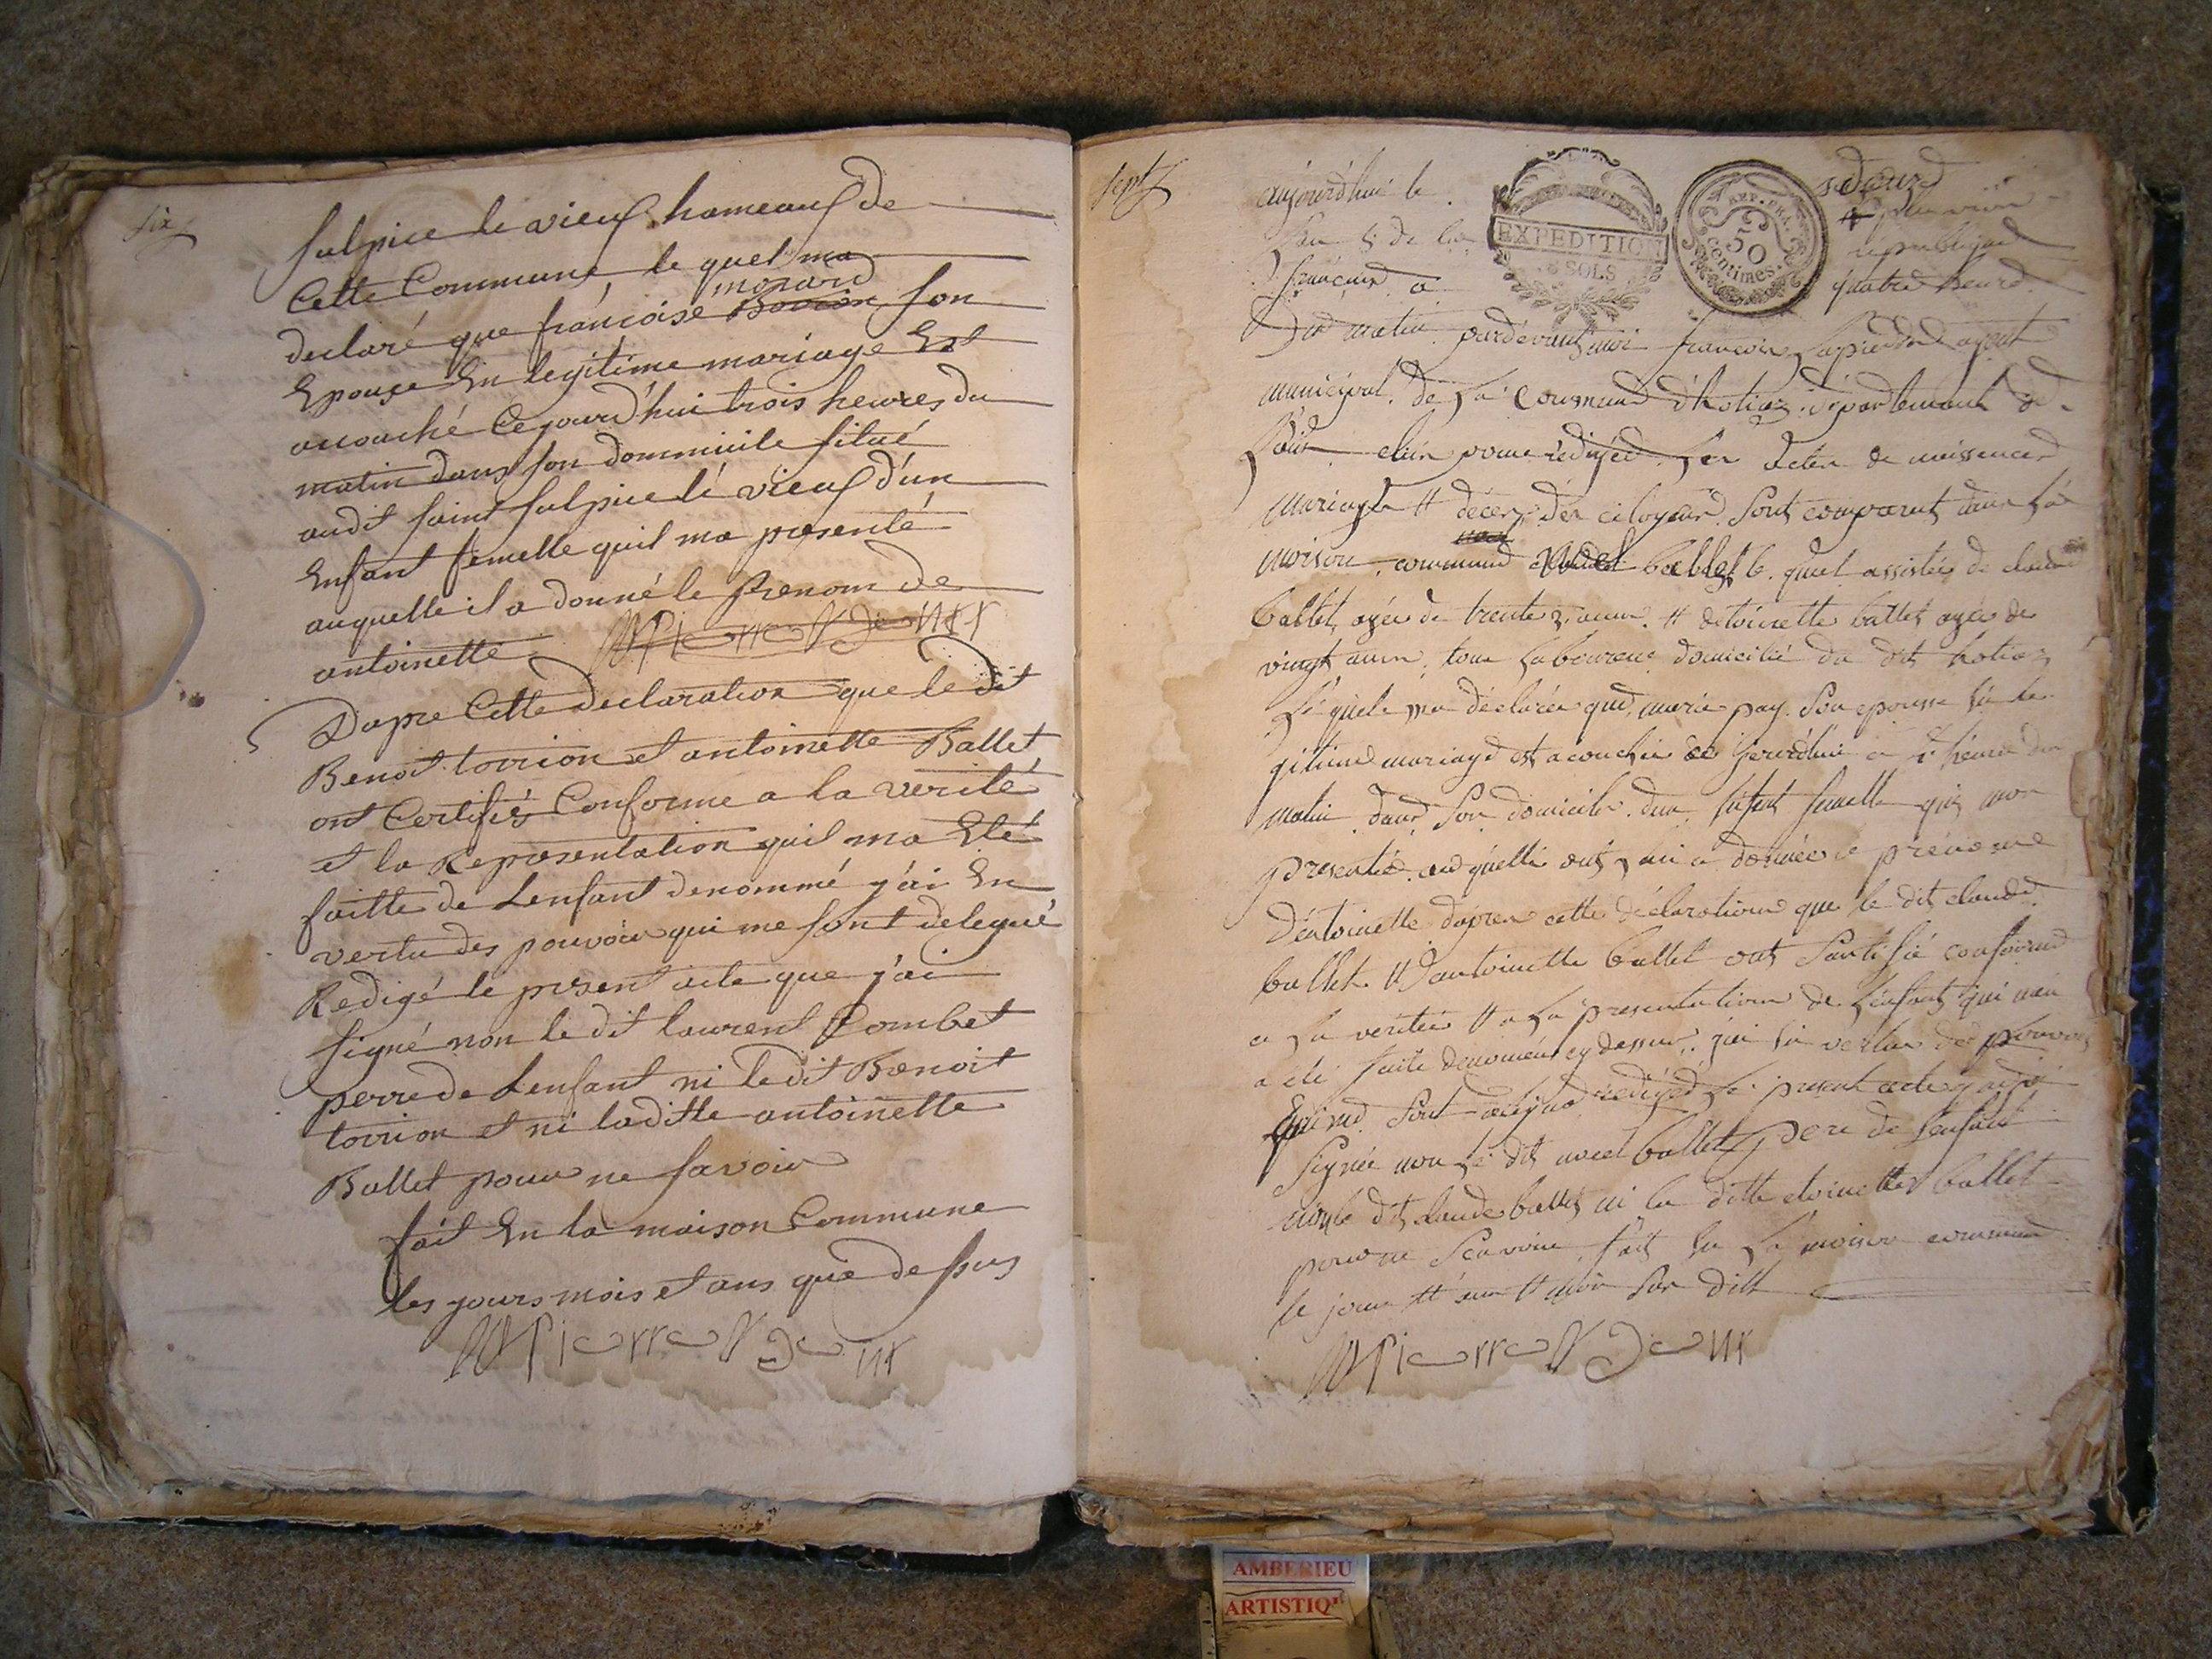 six
sulpice le vieux hameaux de
Cette Commune, le quel ma
monard
declaré que françoise Borrion son
Epouse En legitime mariage Est
accouché Cejourd'hui trois heures du
matin dans son dommicile situé
audit saint sulpice lé vieux d'un
Enfant femelle quil ma presenté
auquelle il a donné le Prenom de
antoinette
Dapre Cette declaration que le dit
Benoit torrion et antoinette Ballet
ont Certifiés Conforme a la verité
et la Representation quil ma Eté
faitte de Lenfant denommé j'ai En
vertu des pouvoir qui me sont delegué
Redigé le present acte que j'ai
signé non le dit laurent Combet
perre de Lenfant ni ledit Benoit
torrion et ni laditte antoinette
Ballet pour ne savoir
fait En la maison Commune
les jours mois et ans que dessus
sept
aujourdhui le
Lan 5 de la
EXPEDITION
SOLS
REP. FRA.
50
centimes.
françaize a
quatre heure
Du matin pardevant moi françois agent
municipal de La commune d'hotiaz département de
Lain elu pour rediger Les actes de naissance
mariage et décès des citoyens sont comparut dans La
maison commune ballet le quel assistée de claude
ballet agée de trente ans et detoinette ballet agée de
vingt ans tous laboureur domicilié du dit hotiaz
Lé quele ma déclarée que marie pay son epousse En le
gitime mariage est acouchée ce jourdhui a heure du
matin dans Son domicile dun Enfent femelle quil mon
presentée au quelle ont lui a donnée le prénome
dentoinette dapres cette déclaration que le dit claude
ballet et dantoinette ballet ont Santifié conforme
a La veritée et a La presentation de Lenfant qui men
a été faite denomée cy dessus j'ai En vertu des pouvoir
qui me sont délégué rédigéd Le present acte que j'ai
Signée non Le dit ballet pere de Lenfant
non le dit claude ballet ni la ditte etoinette ballet
pour ne Scavoir fait En La maison commune
le jour et an et mois Sus dits
AMBERIEU
ARTISTIQ